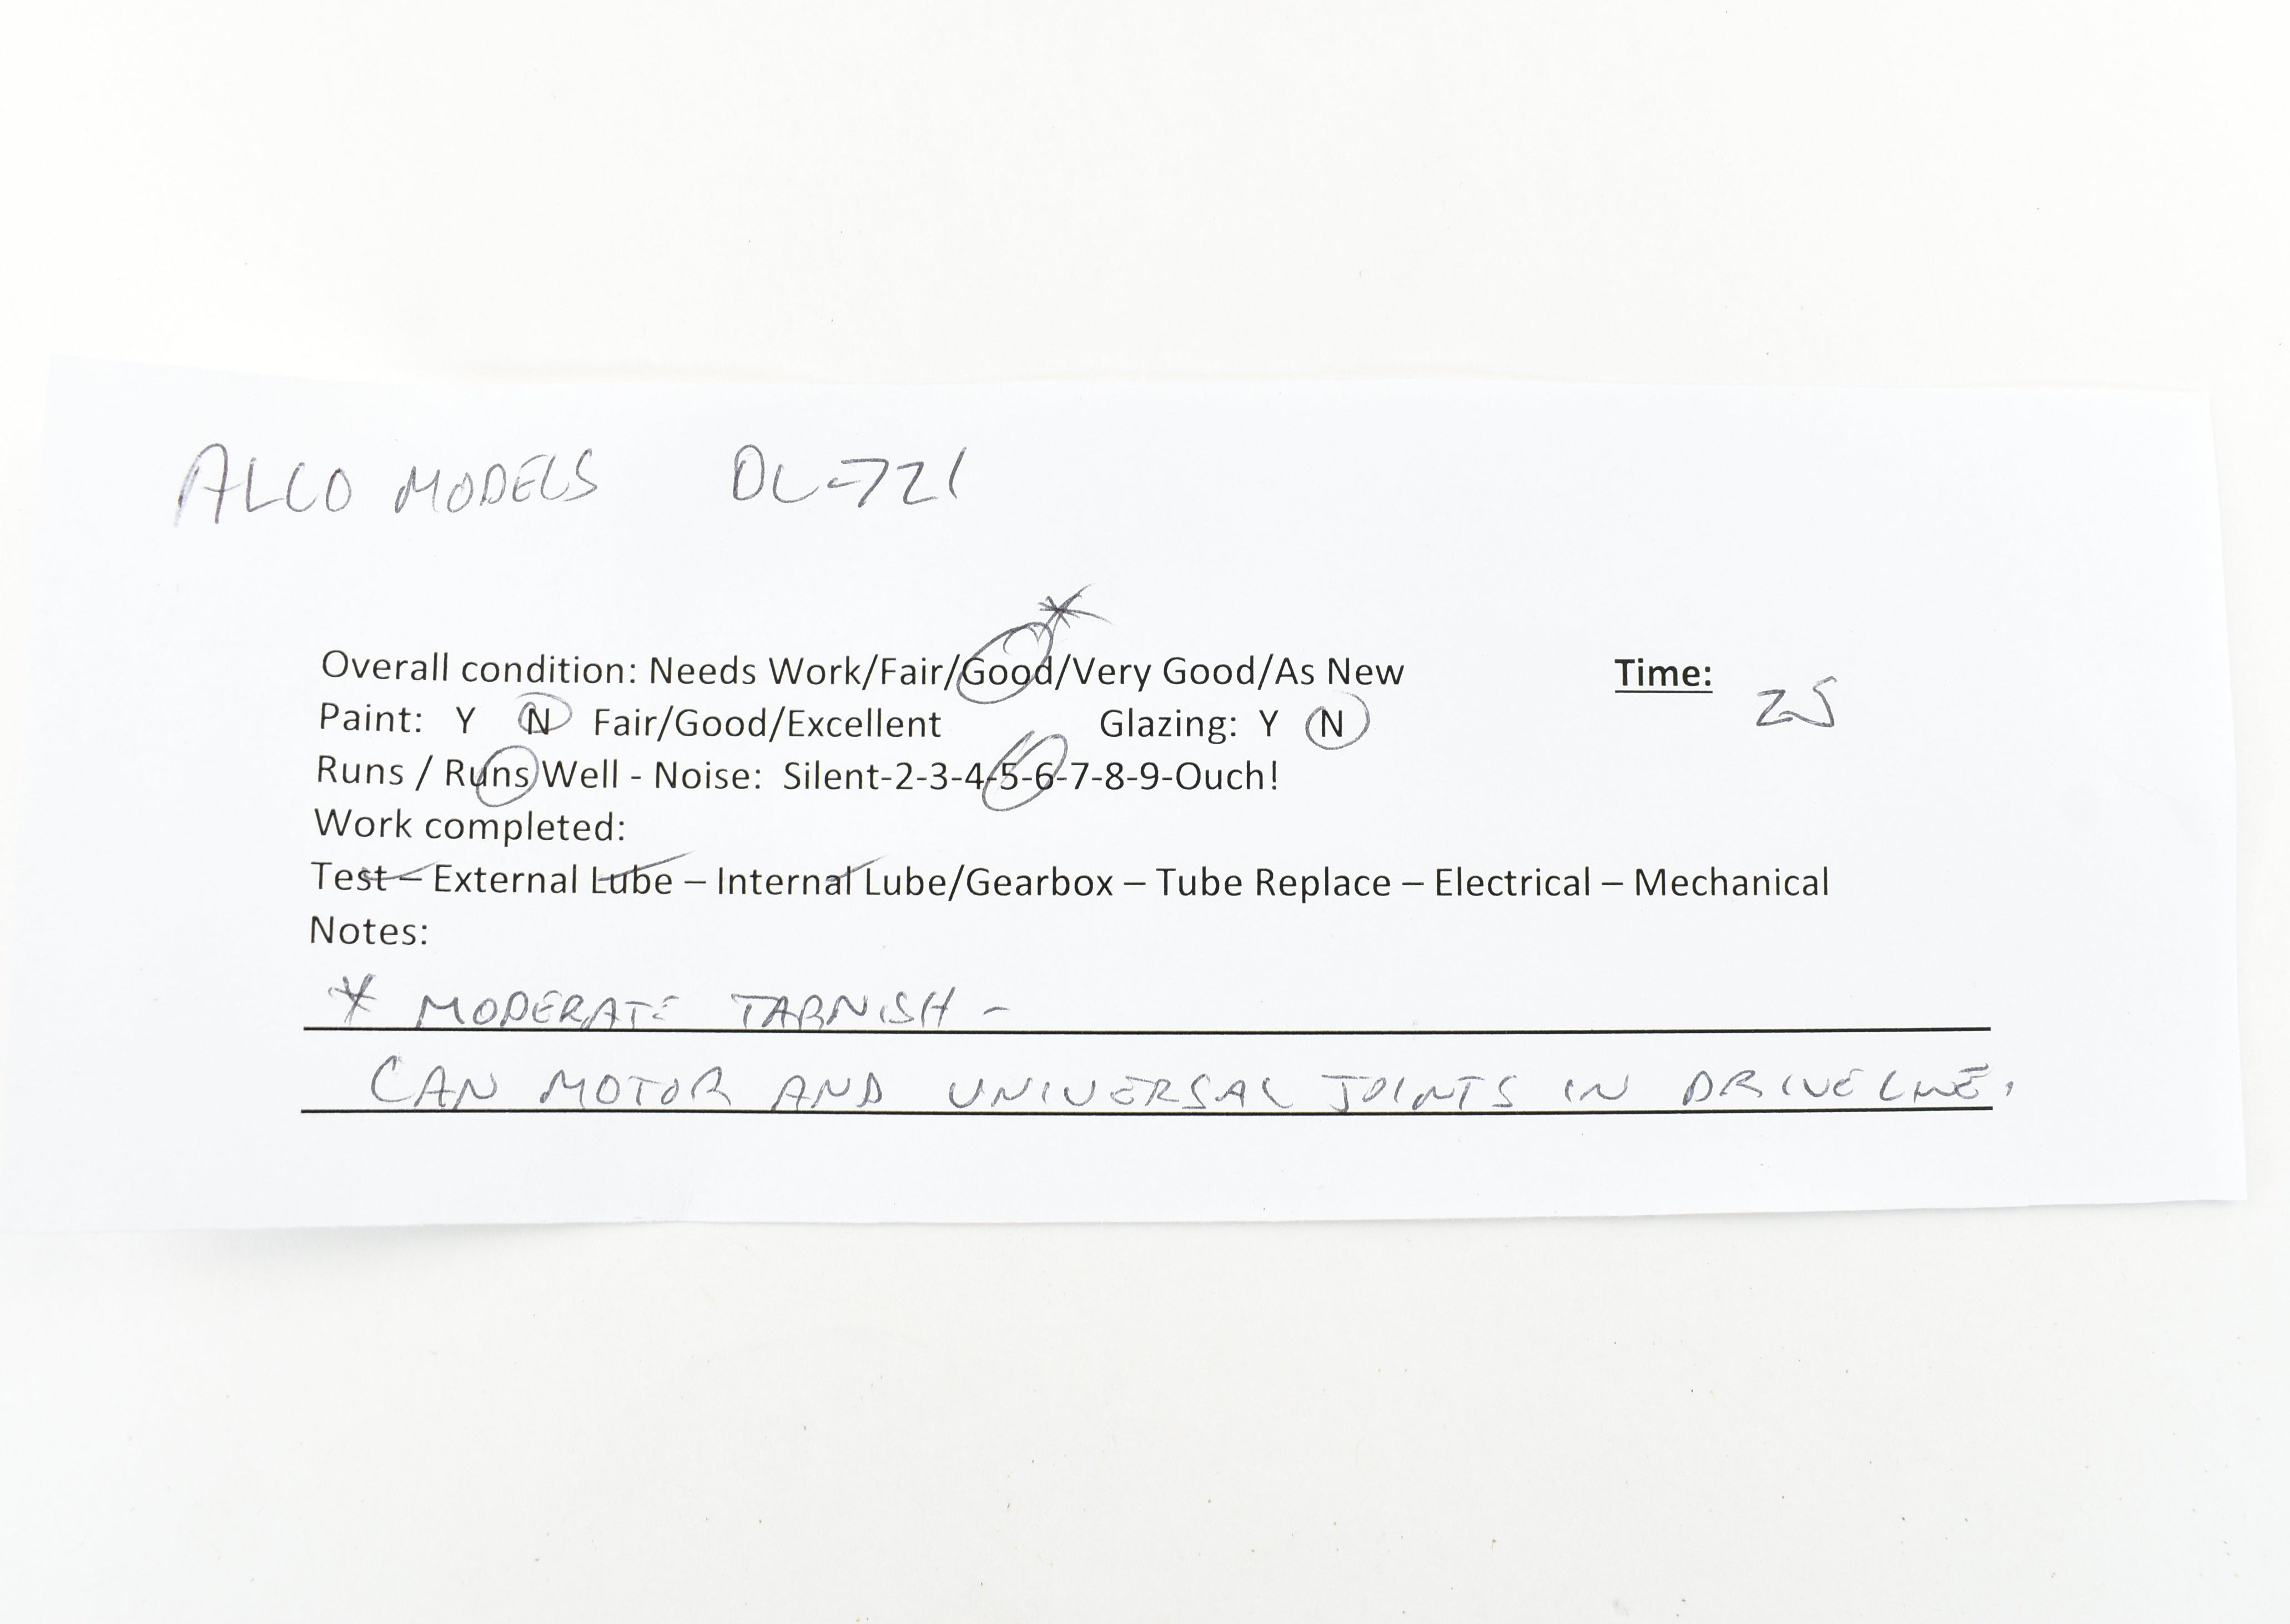 ALCO MODELS DL-721
Overall condition: Needs Work/Fair/Good/Very Good/As New Time: 25
Paint: Y N Fair/Good/Excellent Glazing: Y N
Runs / Runs Well - Noise: Silent-2-3-4-5-6-7-8-9-Ouch!
Work completed:
Test – External Lube – Internal Lube/Gearbox – Tube Replace – Electrical – Mechanical
Notes:
* MODERATE TARNISH -
CAN MOTOR AND UNIVERSAL JOINTS IN DRIVELINE.